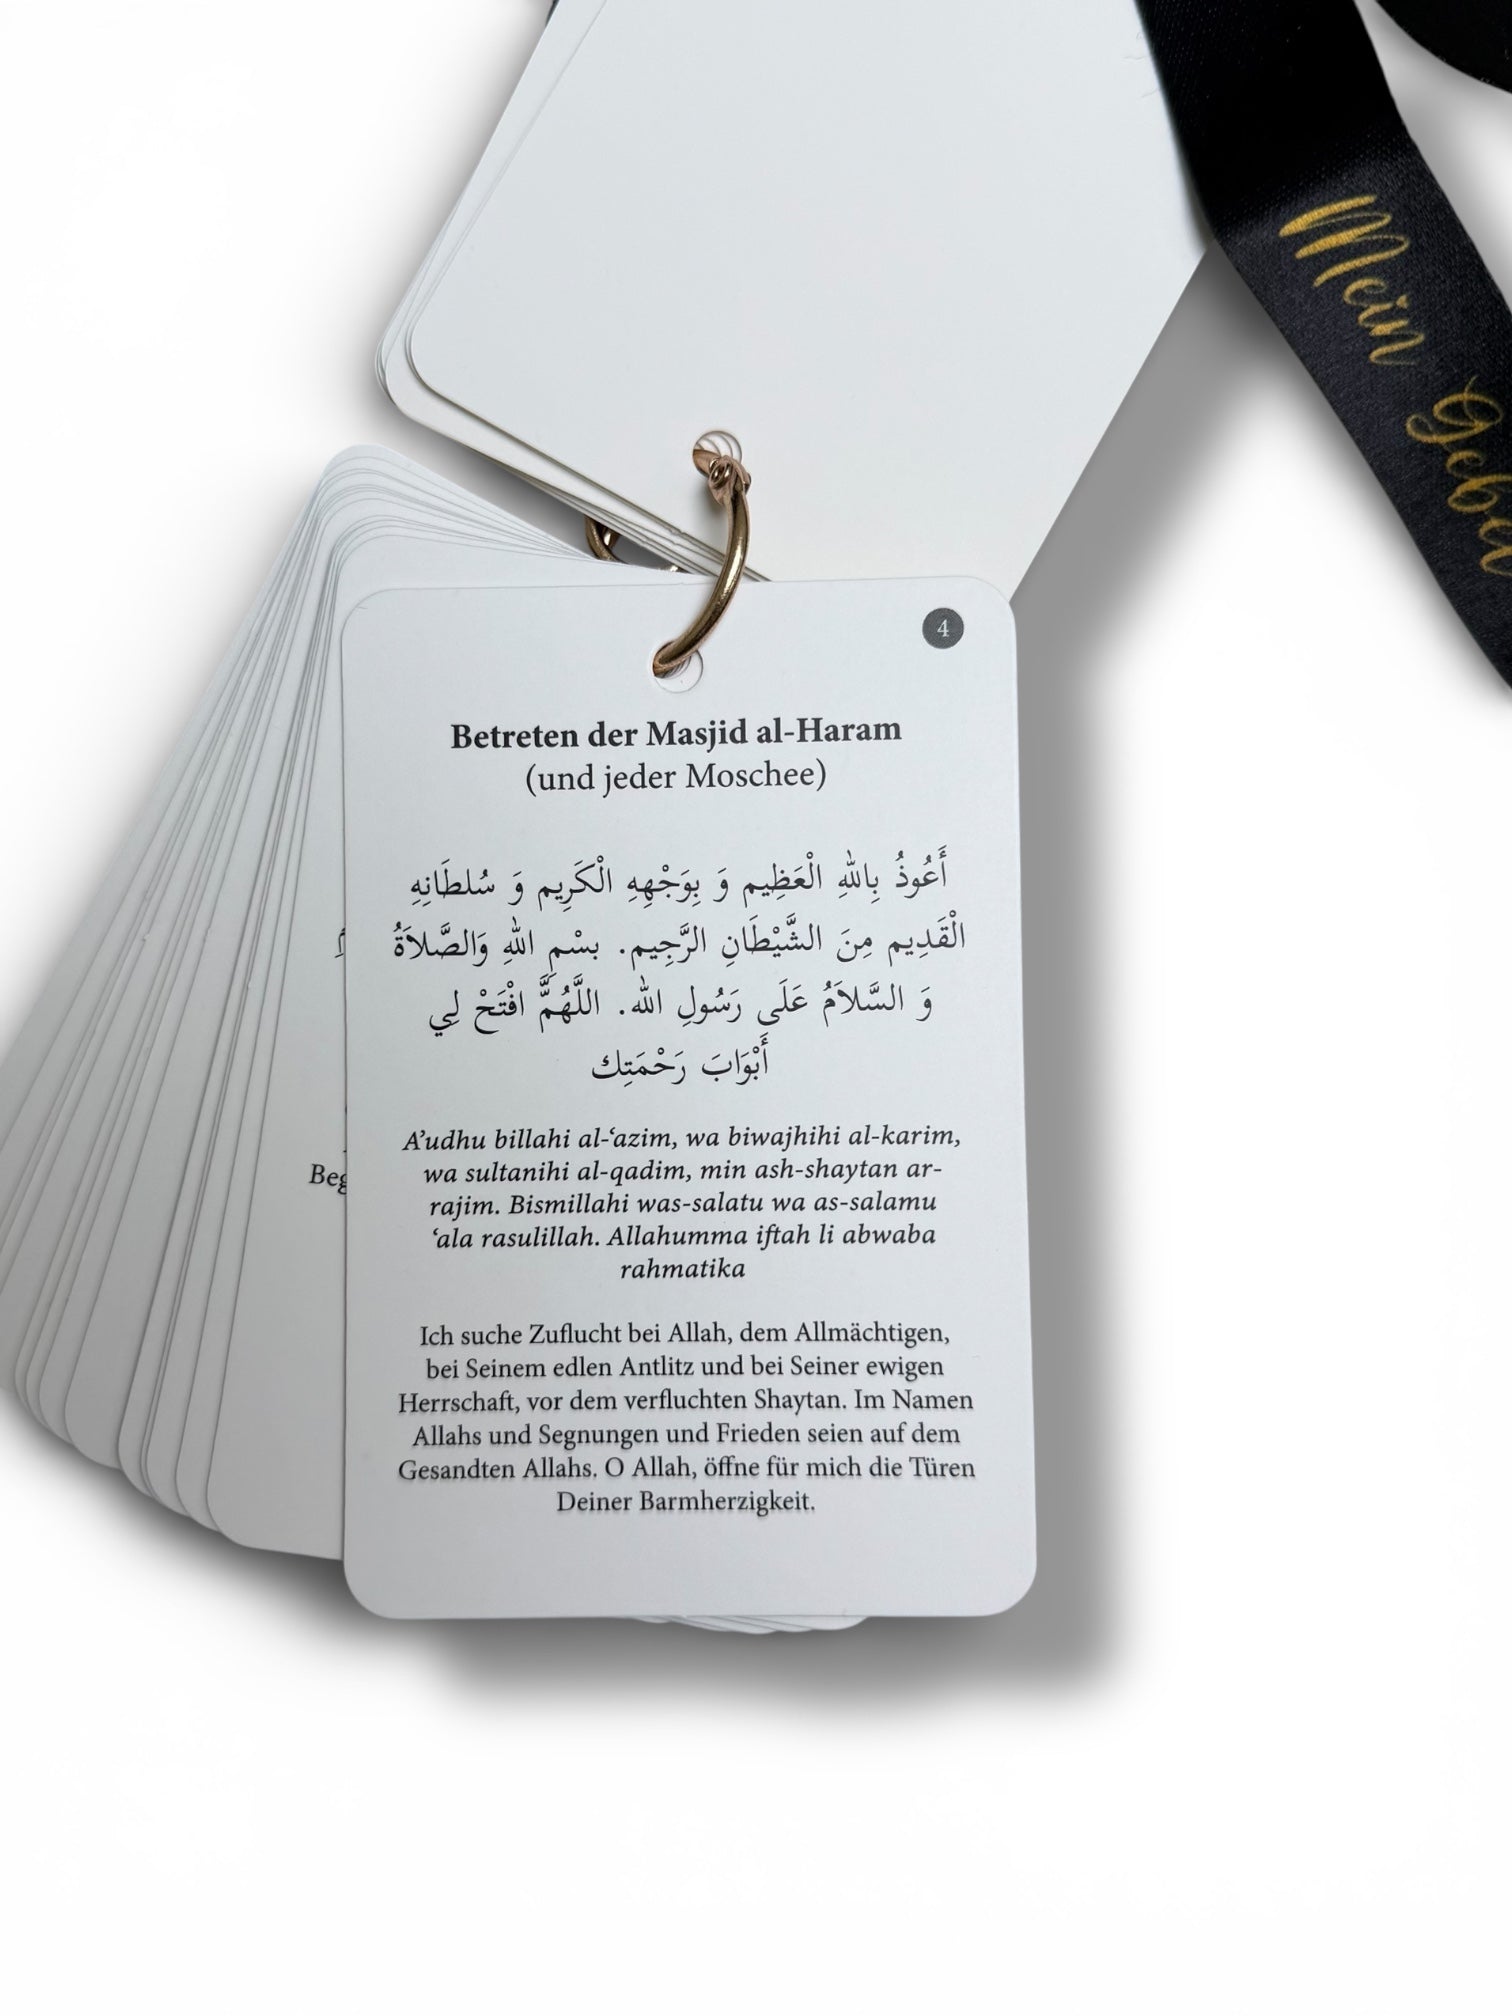 Mein
4
Betreten der Masjid al-Haram
(und jeder Moschee)
أَعُوذُ بِاللهِ الْعَظِيم وَ بِوَجْهِهِ الْكَرِيم وَ سُلطَانِهِ
الْقَدِيم مِنَ الشَّيْطَانِ الرَّجِيم. بسْمِ اللهِ وَالصَّلاَةُ
وَ السَّلاَمُ عَلَى رَسُولِ الله. اللَّهُمَّ افْتَحْ لِي
أَبْوَابَ رَحْمَتِك
A’udhu billahi al-‘azim, wa biwajhihi al-karim,
wa sultanihi al-qadim, min ash-shaytan ar-
rajim. Bismillahi was-salatu wa as-salamu
‘ala rasulillah. Allahumma iftah li abwaba
rahmatika
Ich suche Zuflucht bei Allah, dem Allmächtigen,
bei Seinem edlen Antlitz und bei Seiner ewigen
Herrschaft, vor dem verfluchten Shaytan. Im Namen
Allahs und Segnungen und Frieden seien auf dem
Gesandten Allahs. O Allah, öffne für mich die Türen
Deiner Barmherzigkeit.